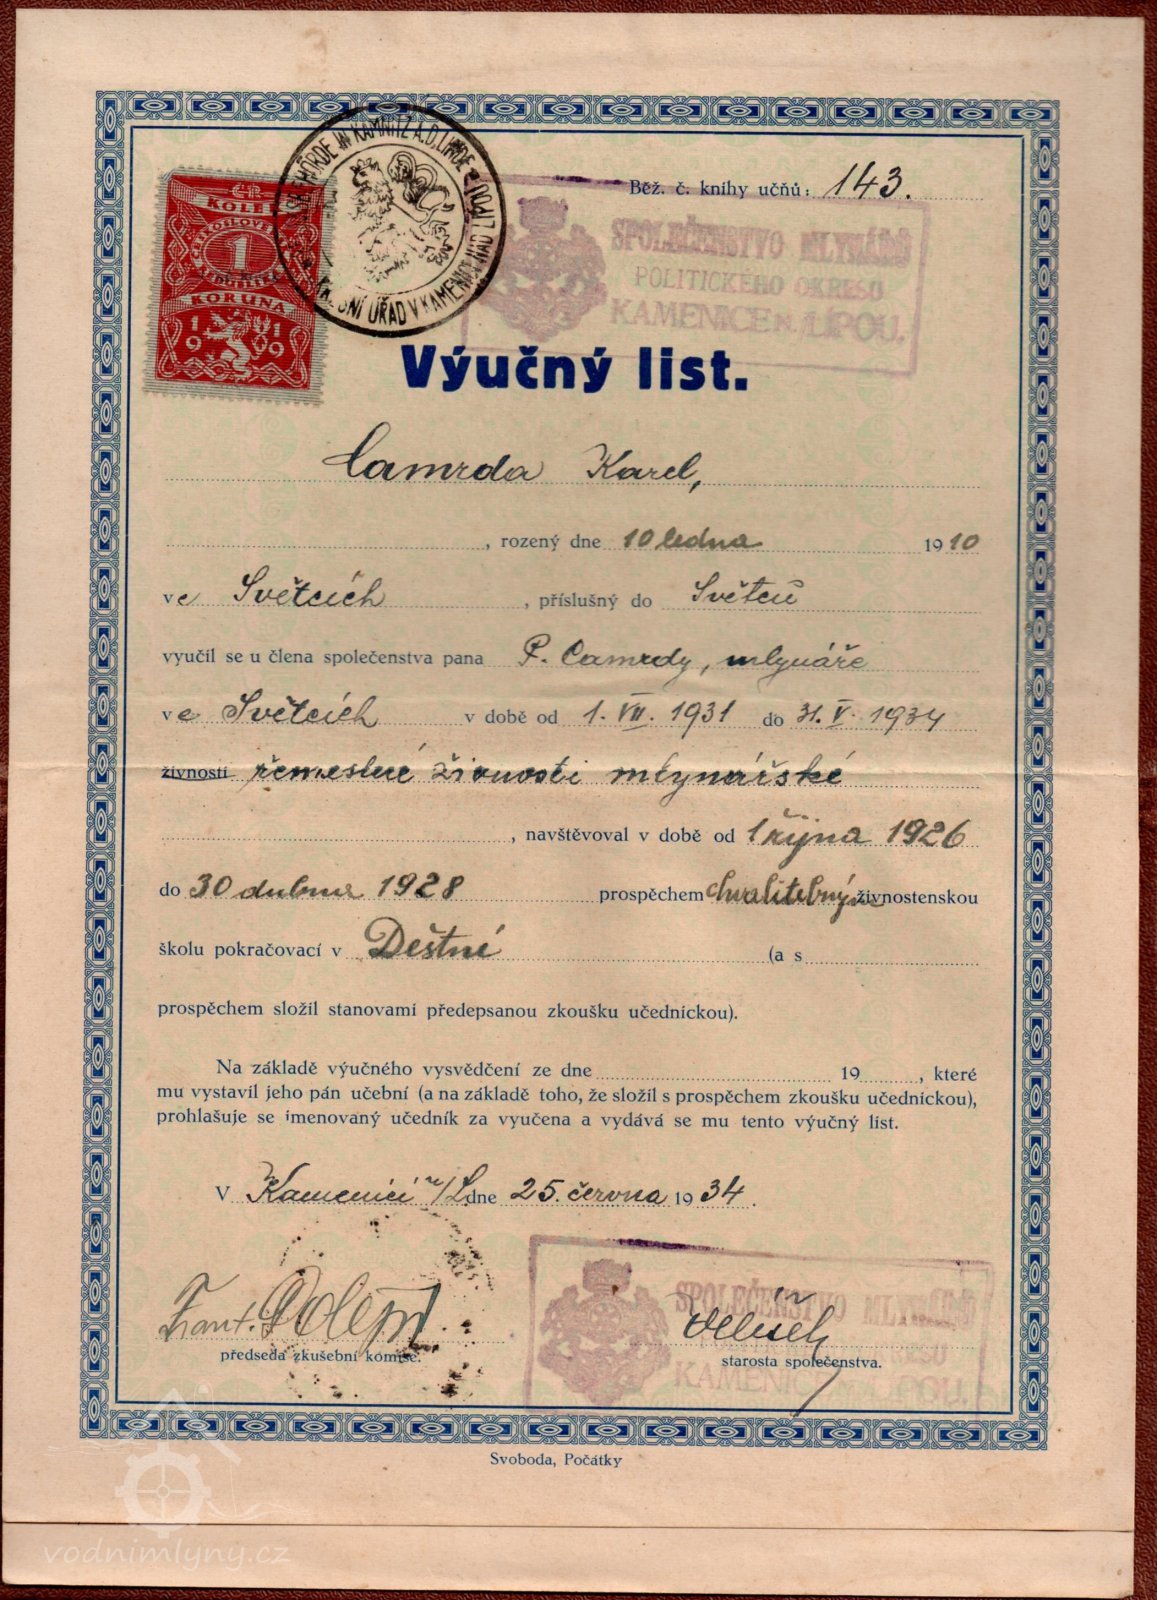 Běž. č. knihy učňů: 143.
SPOLEČENSTVO MLYNÁŘŮ
POLITICKÉHO OKRESU
KAMENICE n. LIPOU.
HÖRDE IN KAMNITZ A.D. LINDE
ÚŘAD V KAMENICI NAD LIPOU
ČR
KOLEK
ČESKOSLOVENSKÁ
1
KORUNA
1919
Výučný list.
Camrda Karel,
, rozený dne 10 ledna 1910
ve Světcích , příslušný do Světců
vyučil se u člena společenstva pana P. Camrdy, mlynáře
ve Světcích v době od 1. VII. 1931 do 31. V. 1934
živnosti řemeslné živnosti mlynářské
, navštěvoval v době od 1 října 1926
do 30 dubna 1928 prospěchem chvalitebným živnostenskou
školu pokračovací v Deštné (a s
prospěchem složil stanovami předepsanou zkoušku učednickou).
Na základě výučného vysvědčení ze dne 19 , které
mu vystavil jeho pán učební (a na základě toho, že složil s prospěchem zkoušku učednickou),
prohlašuje se imenovaný učedník za vyučena a vydává se mu tento výučný list.
V Kamenici n/L dne 25. června 1934.
Frant.
předseda zkušební komise.
starosta společenstva.
SPOLEČENSTVO MLYNÁŘŮ
KAMENICE N. LIPOU.
Svoboda, Počátky
vodnimlyny.cz